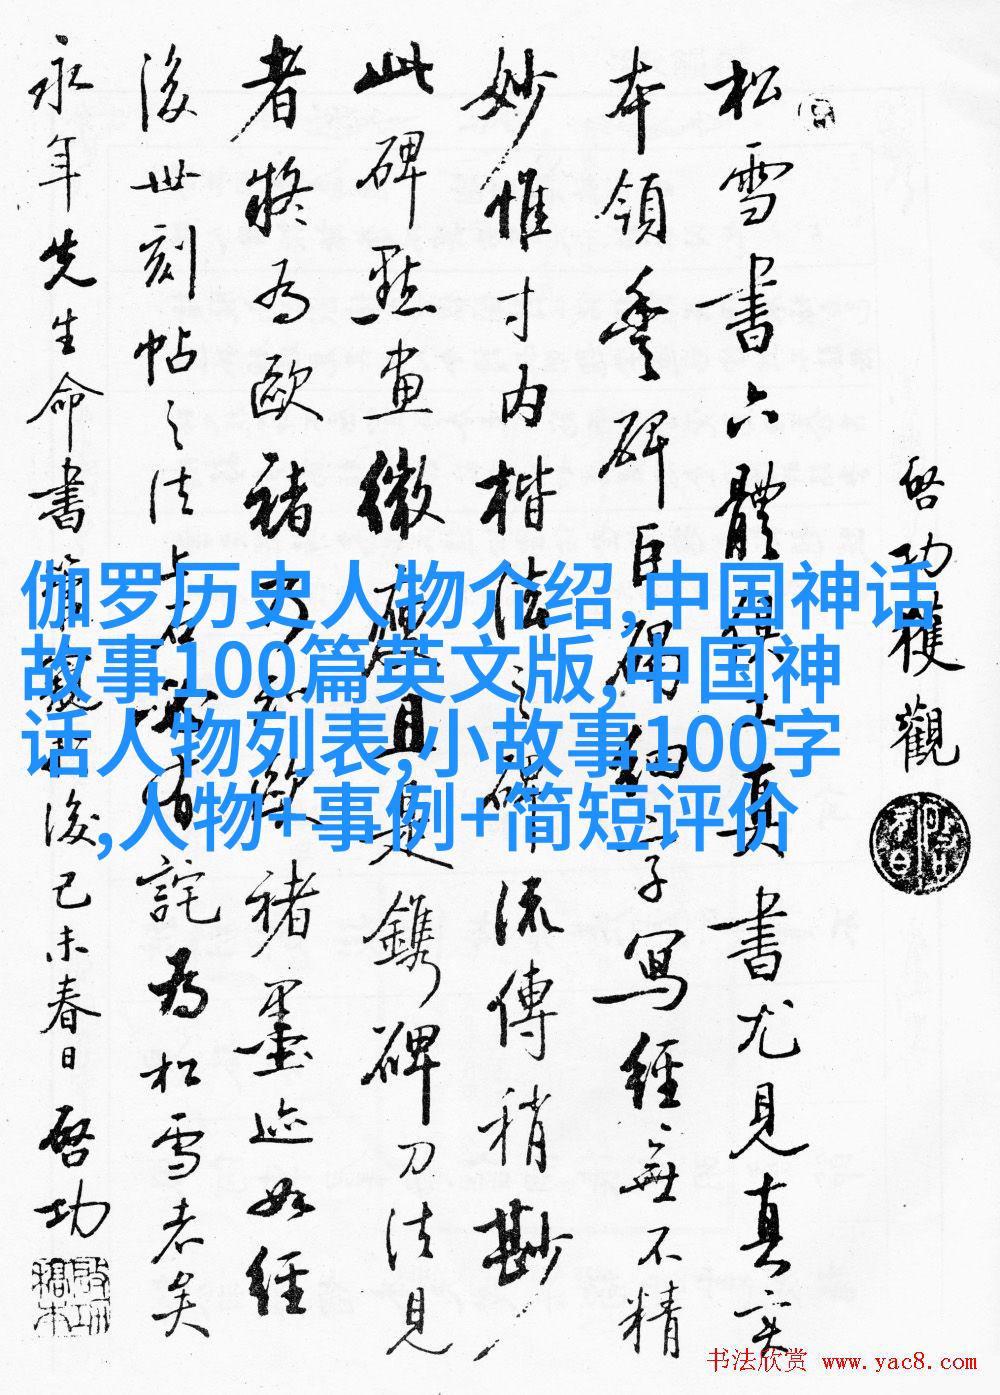 啓功獲觀
松雪書六體真書尤見真實
本領豐碑巨碣細字寫經無不精
妙惟寸内楷法之碑流傳稍尠
此碑點畫微瘦且鐫碑刀法見
者將為歐褚歐褚墨迹如經
後世刻帖之法上石詫為松雪者矣
永年先生命書後己未春日啓功
伽罗历史人物介绍,中国神话
故事100篇英文版,中国神
话人物列表,小故事100字
,人物+事例+简短评价
书法欣赏 www.yac8.com